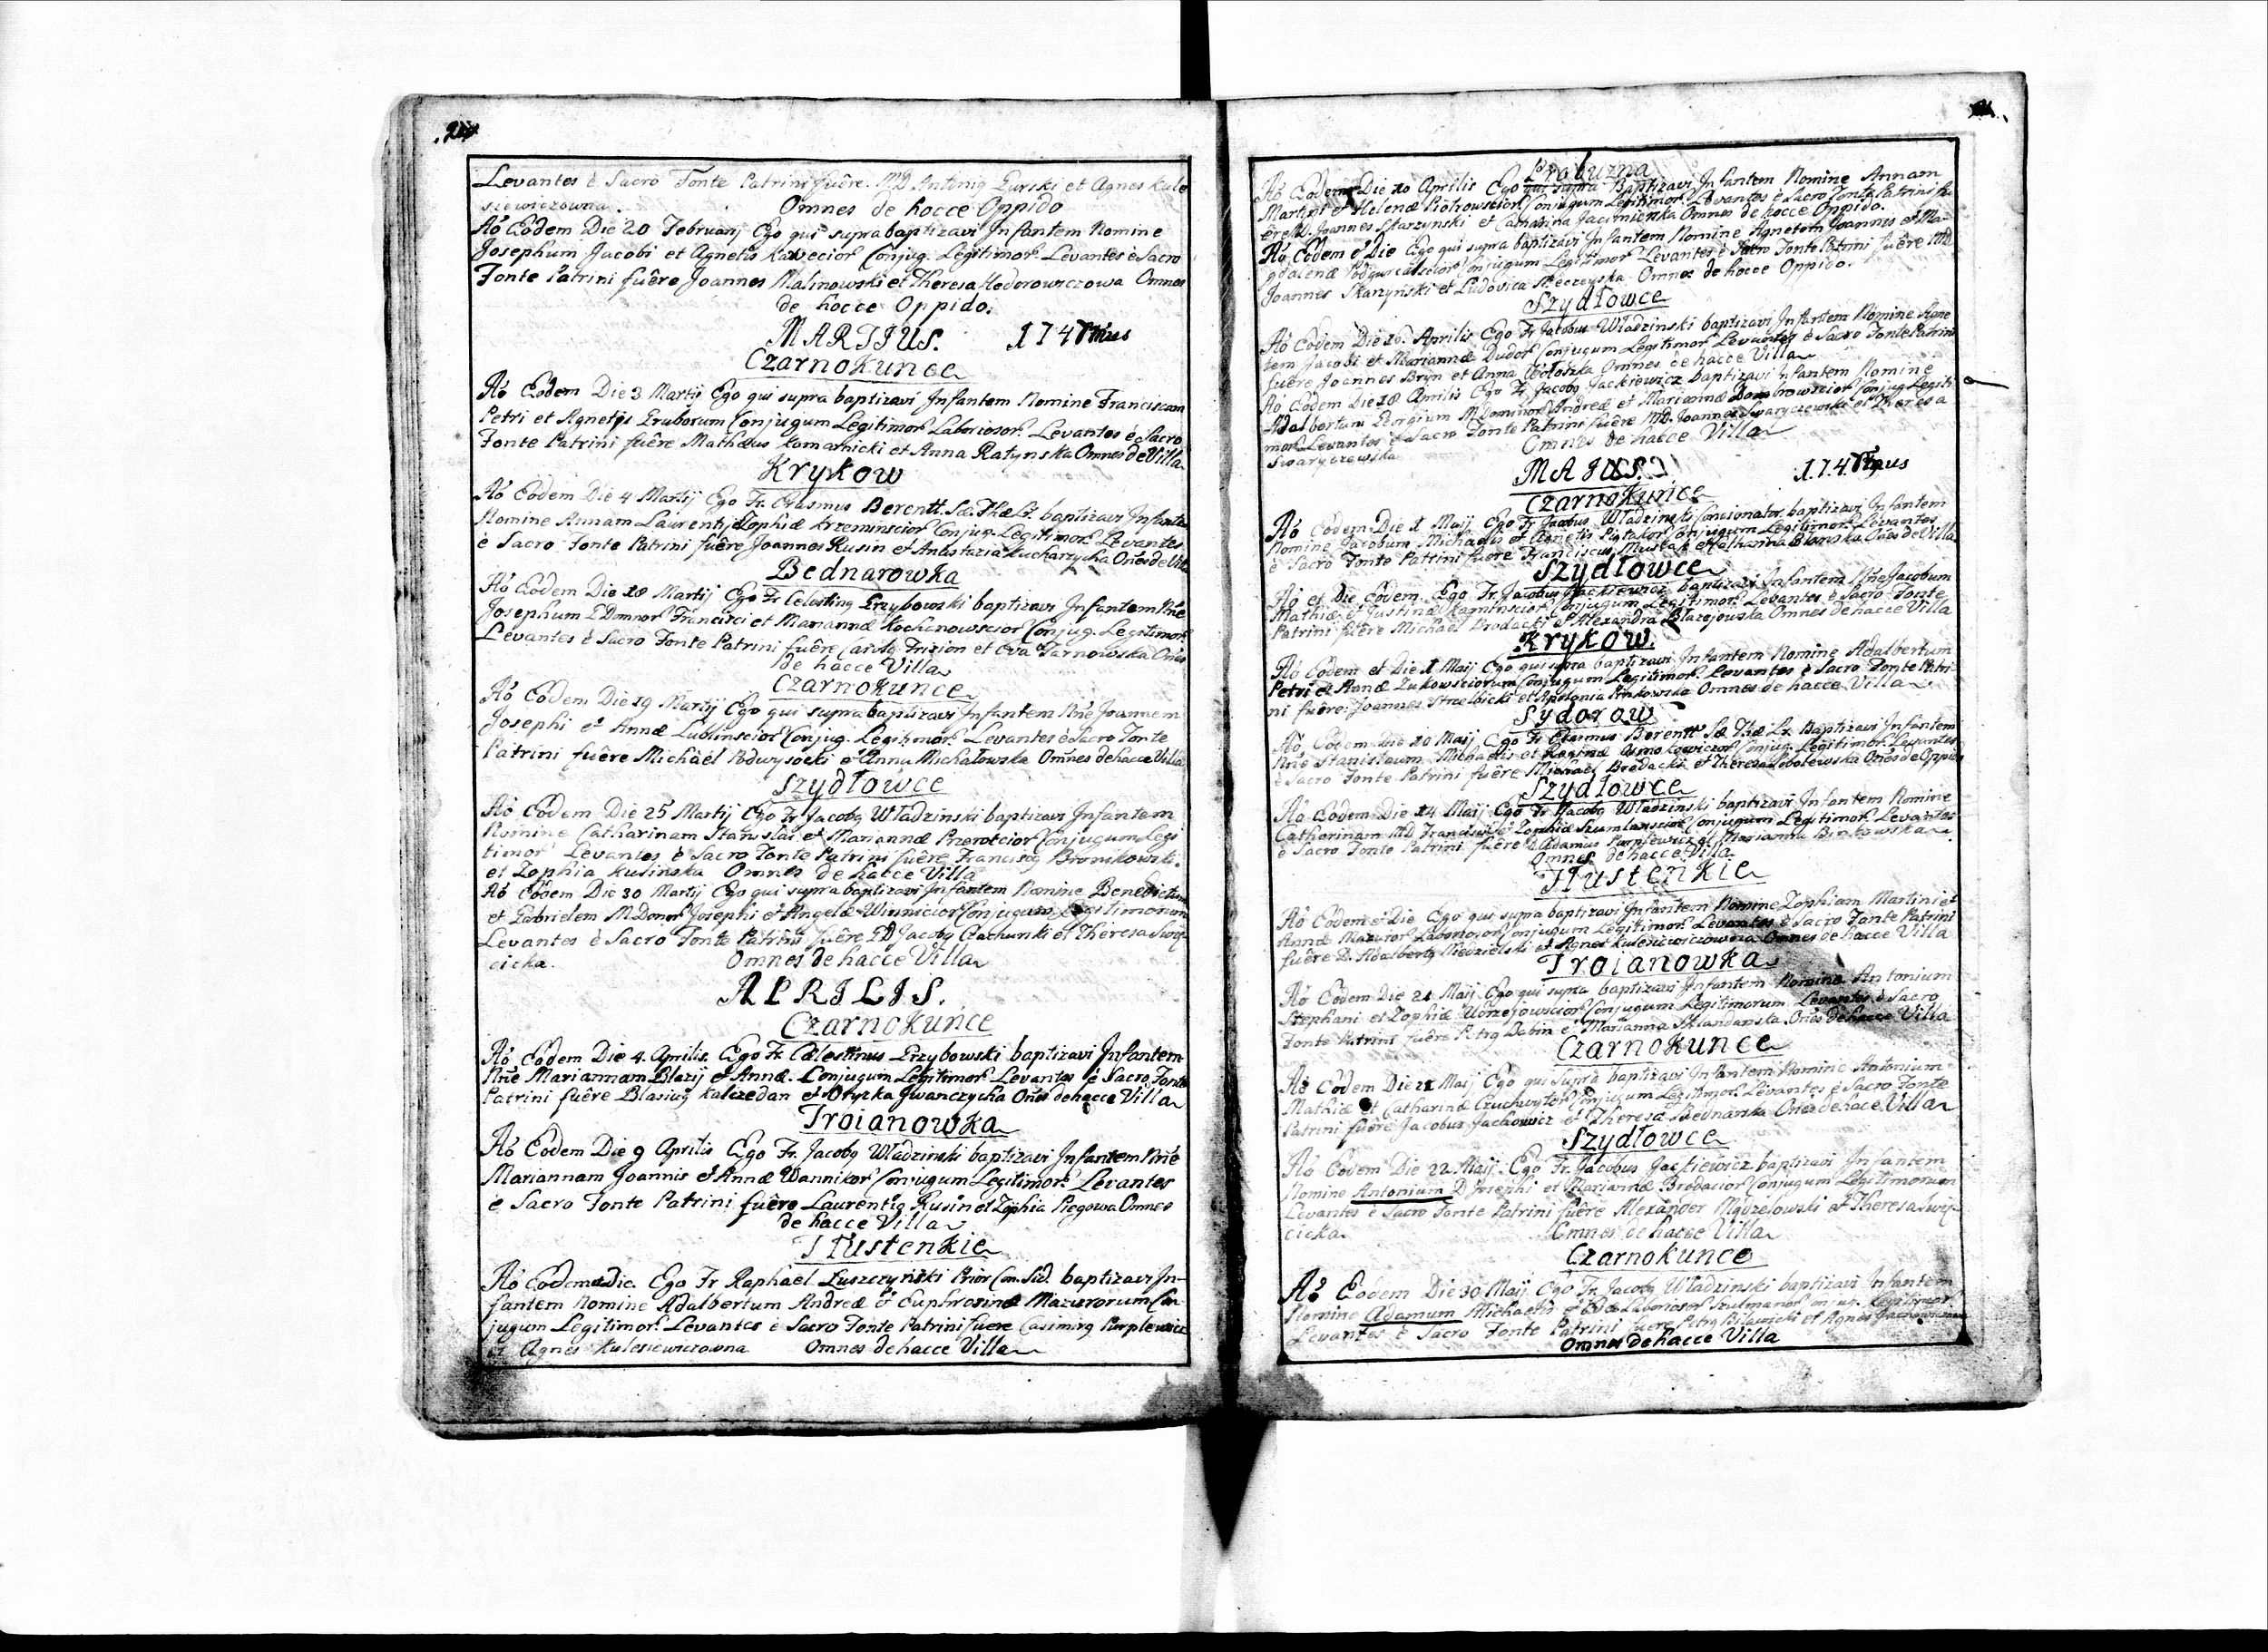 Levantes è Sacro Fonte Patrini fuêre. MD. Antonig Gurski et Agnes Kule
siewiczowna. Omnes de hocce Oppido
Aõ Eodem Die 20 Februarij Ego qui supra baptizavi Infantem Nomine
Josephum Jacobi et Agnetis Conjug. Legitimor. Levantes è Sacro
Fonte Patrini fuêre Joannes Malinowski et Theresa Hedorowiczowa Omnes
de hocce Oppido.
MARTIUS. 174
Czarnokunce
Aõ Eodem Die 3 Martij Ego qui supra baptizavi Infantem Nomine Franciscam
Petri et Agnetis Gruborum Conjugum Legitimor. Laboriosor. Levantes è Sacro
Fonte Patrini fuêre Mathæus Komarnicki et Anna Ratynska Omnes de Villa
Krykow
Aõ Eodem Die 4 Martij Ego Fr. Erasmus Berentt. Sæ. Thæ Lr. baptizavi Infante
Nomine Annam Laurentij Zophiæ Krzeminscior Conjug. Legitimor. Levantes
è Sacro Fonte Patrini fuêre Joannes Rusin et Anastazia Kucharzycha Oñes de Vila
Bednarowka
Aõ Eodem Die 18 Martij Ego Fr Celesting Grzybowski baptizavi Infantem Nñe
Josephum GDomnor Francisci et Mariannæ Kochanowscior Conjug. Legitimor
Levantes è Sacro Fonte Patrini fuêre Carolg Frizion et Eva Tarnowska Oñes
de hacce Villa
Czarnokunce
Aõ Eodem Die 19 Martij Ego qui supra baptizavi Infantem Nñe Joannem
Josephi et Annæ Lublinscior Conjug. Legitimor. Levantes è Sacro Fonte
Patrini fuêre Michaël Podwysocki et Anna Michałowska Omñes de hacce Villa
Szydłowce
Aõ Eodem Die 25 Martij Ego Fr Jacobg Władzinski baptizavi Infantem
Nomine Catharinam Stanislai et Mariannæ Conjugum Legi
timor Levantes è Sacro Fonte Patrini fuêre Franciscg Bronikowski.
et Zophia Kusinska Omnes de hacce Villa
Aõ Eodem Die 30 Martij Ego qui supra baptizavi Infantem Nomine Benedictum
et Gabrielem MDomor Josephi et Angelæ Winnicior Conjugum Legitimorum
Levantes è Sacro Fonte Patrini fuêre GD Jacobg Czachurski et Theresa Swię-
cicka. Omnes de hacce Villa
APRILIS.
Czarnokunce
Aõ Eodem Die 4. Aprilis. Ego Fr. Cælestinus Grzybowski baptizavi Infantem
Nñe Mariannam Blazij et Annæ. Conjugum Legitimor Levantes è Sacro Fonte
Patrini fuêre Blasiug Kalczedan et Orycka Jwanczycha Oñes de hacce Villa
Troianowka
Aõ Eodem Die 9 Aprilis Ego Fr. Jacobg Władzinski baptizavi Infantem Nñe
Mariannam Joannis et Annæ Wannikor Conjugum Legitimor. Levantes
è Sacro Fonte Patrini fuêre Laurentig Rusin et Zophia Piegowa Omnes
de hacce Villa
Tłustenkie
Aõ Eodem et Die. Ego Fr Raphaël Łuszczyński Prior Con. Sid. baptizavi In-
fantem Nomine Adalbertum Andreæ et Euphrosinæ Mazurorum Con-
jugum Legitimor. Levantes è Sacro Fonte Patrini fuere Casimirg Purplewicz
et Agnes Kulesiewiczowna Omnes de hacce Villa
Probuzna
Aõ Eodem Die 10 Aprilis Ego qui supra Baptizavi Infantem Nomine Annam
Martini et Helenæ Piotrowscior Conjugum Legitimor. Levantes è Sacro Fonte Patrini fu
êre M. Joannes Skarzynski et Catharina Jacimienska Omnes de hocce Oppido.
Aõ Eodem et Die Ego qui supra baptizavi Infantem Nomine Agnetem Joannis et Ma-
gdalenæ Conjugum Legitimor Levantes è Sacro Fonte Patrini fuêre MD
Joannes Skarzynski et Ludovica Omnes de hocce Oppido.
Szydłowce
Aõ Eodem Die 16. Aprilis Ego Fr Jacobus Władzinski baptizavi Infantem Nomine Agne
tem Jacobi et Mariannæ Dudor Conjugum Legitimor Levantes è Sacro Fonte Patrini
fuêre Joannes Bryn et Anna Wołoszka Omnes de hacce Villa
Aõ Eodem Die 18 Aprilis Ego Fr Jacobg Jackiewicz baptizavi Infantem Nomine
Adalbertum Georgium MDominor Andreæ et Mariannæ Dombrowscior Conjug Legiti
mor. Levantes è Sacro Fonte Patrini fuêre MD. Joannes Swaryczewski et Theresa
Swaryczewska Omnes de hacce Villa
MAJUS. 174
Czarnokunce
Aõ Eodem Die 1 Maij Ego Fr Jacobus Władzinski Concionator baptizavi Infantem
Nomine Jacobum Michaelis et Agnetis Conjugum Legitimor. Levantes
è Sacro Fonte Patrini fuêre Franciscus et Catharina Oñes de Villa
Szydłowce
Aõ et Die Eodem. Ego Fr. Jacobus Jackiewicz baptizavi Infantem Nñe Jacobum
Mathiæ et Justinæ Kaminscior Conjugum Legitimor. Levantes è Sacro Fonte
Patrini fuêre Michaël Brodacki et Alexandra Błazejowska Omnes de hacce Villa
Krykow.
Aõ Eodem et Die 1 Maij Ego qui supra baptizavi Infantem Nomine Adalbertum
Petri et Annæ Zukowsciorum Conjugum Legitimor. Levantes è Sacro Fonte Patri-
ni fuêre. Joannes Strzelbicki et Apolonia Pinkowska Omnes de hacce Villa
Sydorow
Aõ, Eodem Die 10 Maij Ego Fr Erasmus Berentt Sæ Thæ Lr. Baptizavi Infantem
Nñe Stanislaum Michaelis et Reginæ Conjug. Legitimor. Levantes
è Sacro Fonte Patrini fuêre Michaël Brodacki et Theresa Sobolewska Oñes de Oppido
Szydłowce
Aõ Eodem Die 14 Maij Ego Fr Jacobg Władzinski baptizavi Infantem Nomine
Catharinam MD Francisci et Zophiæ Szumlanscior Conjugum Legitimor. Levantes
è Sacro Fonte Patrini fuêre Adamus et Marianna
Omnes de hacce Villa.
Tłustenkie
Aõ Eodem et Die Ego qui supra baptizavi Infantem Nomine Zophiam Martini et
Annæ Mazuror Laboriosor Conjugum Legitimor. Levantes è Sacro Fonte Patrini
fuêre D. Adalbertg Niedzielski et Agnes Kulesiewiczowna Omnes de hacce Villa
Troianowka
Aõ Eodem Die 21 Maij Ego qui supra baptizavi Infantem Nomine Antonium
Stephani et Zophiæ Conjugum Legitimorum Levantes è Sacro
Fonte Patrini fuêre Petrg Dabin et Marianna Oñes de hacce Villa
Czarnokunce
Aõ Eodem Die 21 Maij Ego qui supra baptizavi Infantem Nomine Antonium
Mathiæ et Catharinæ Conjugum Legitimor. Levantes è Sacro Fonte
Patrini fuêre Jacobus Jachowicz et Theresa Bednarska Oñes de hacce Villa
Szydłowce
Aõ Eodem Die 22 Maij. Ego Fr. Jacobus Jackiewicz baptizavi Infantem
Nomine Antonium D Josephi et Mariannæ Brodacior Conjugum Legitimorum
Levantes è Sacro Fonte Patrini fuêre Alexander et Theresa Swię-
cicka. Omnes de hacce Villa
Czarnokunce
Aõ Eodem Die 30 Maij Ego Fr. Jacobg Władzinski baptizavi Infantem
Nomine Adamum Michaelis et Evæ Laboriosor Szulmanor Conjug. Legitimor.
Levantes è Sacro Fonte Patrini fuere Petrg et Agnes
Omnes de hacce Villa